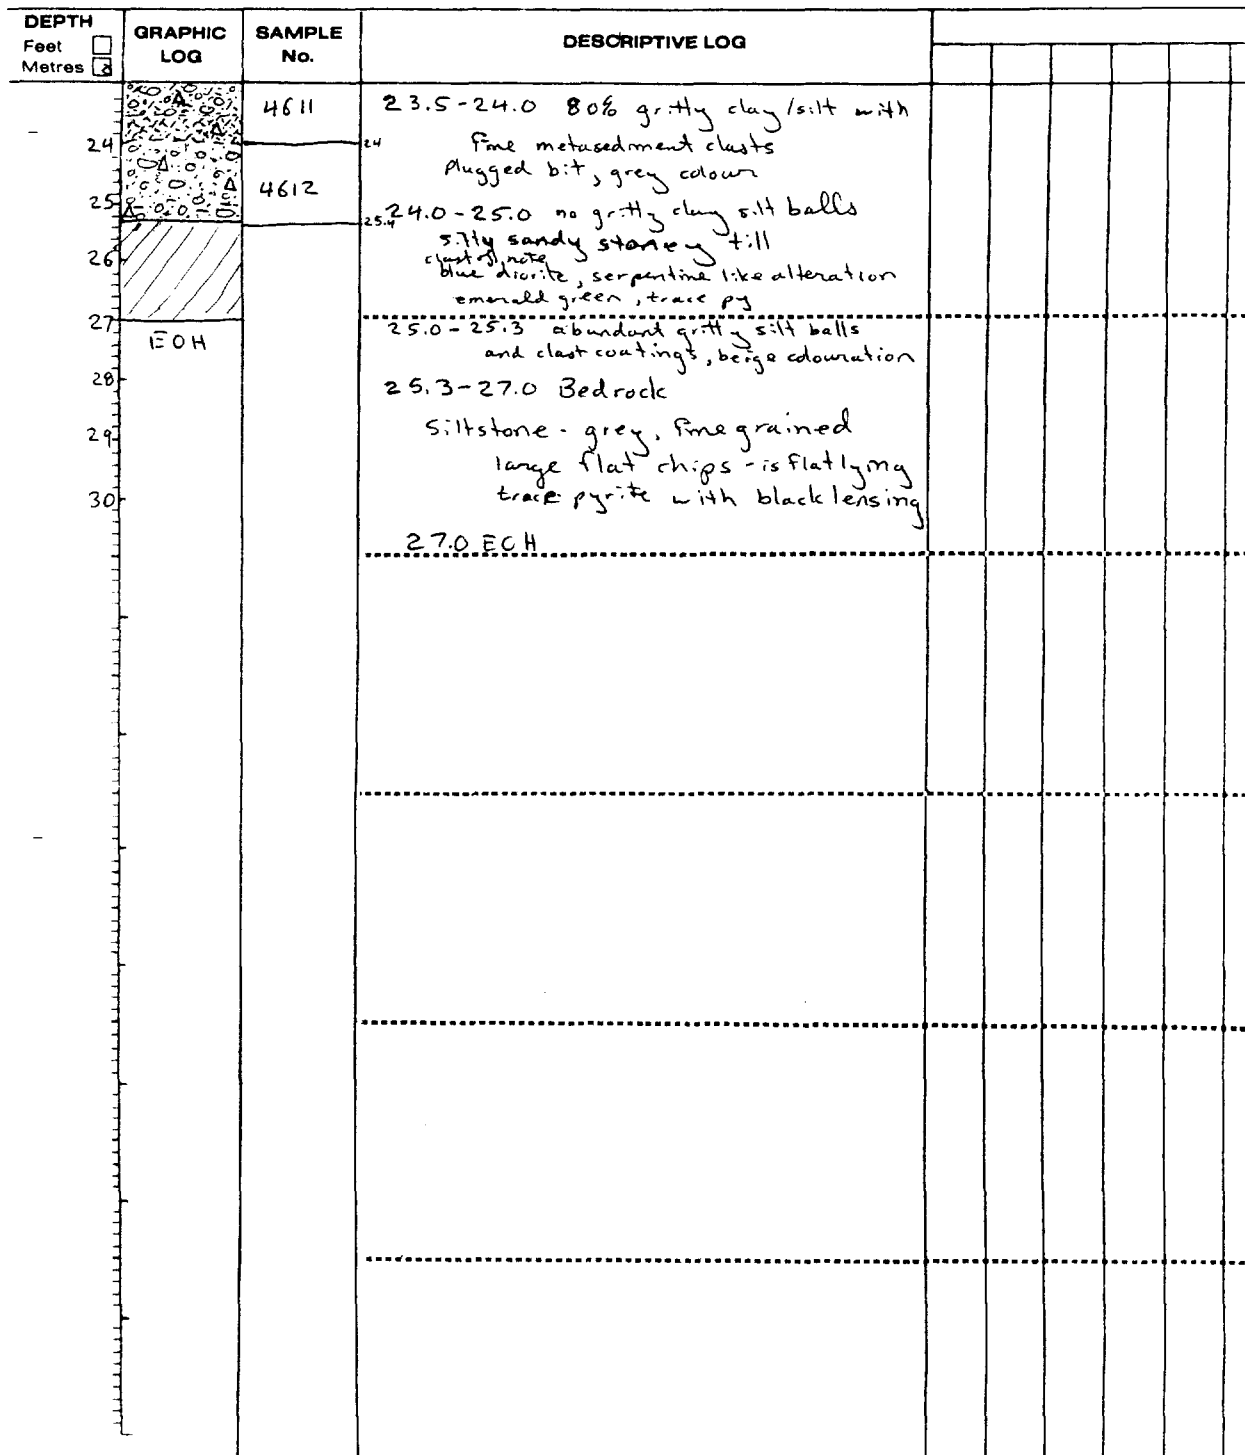 DEPTH
Feet
Metres
GRAPHIC
LOG
SAMPLE
No.
DESCRIPTIVE LOG
24
25
26
27
28
29
30
EOH
4611
24
4612
25.4
23.5-24.0 80% gritty clay/silt with
fine metasediment clasts
plugged bit, grey colour
24.0-25.0 no gritty clay silt balls
silty sandy stoney till
clast of note
blue diorite, serpentine like alteration
emerald green, trace py
25.0-25.3 abundant gritty silt balls
and clast coatings, beige colouration
25.3-27.0 Bedrock
Siltstone - grey, fine grained
large flat chips - is flatlying
trace pyrite with black lensing
27.0 EOH